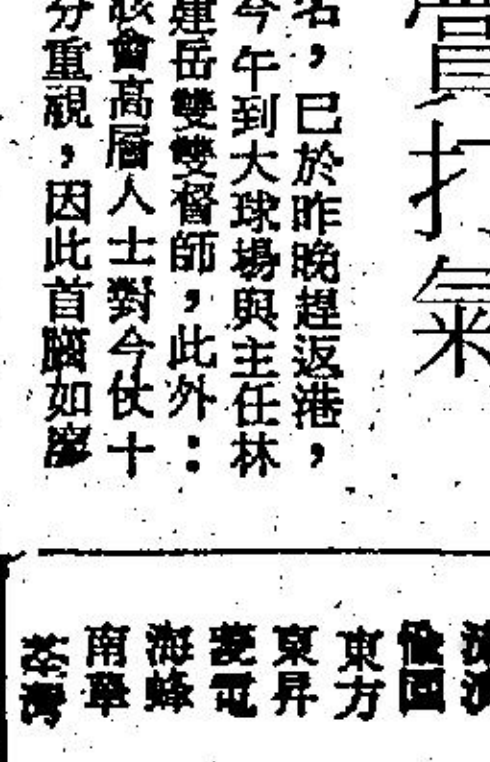 打氣
名，已於昨晚趕返港，
今午到大球場與主任林
建岳雙雙督師，此外：
該會高層人士對今仗十
分重視，因此首腦如廖
愉園
東方
東昇
菱電
海蜂
南華
荃灣